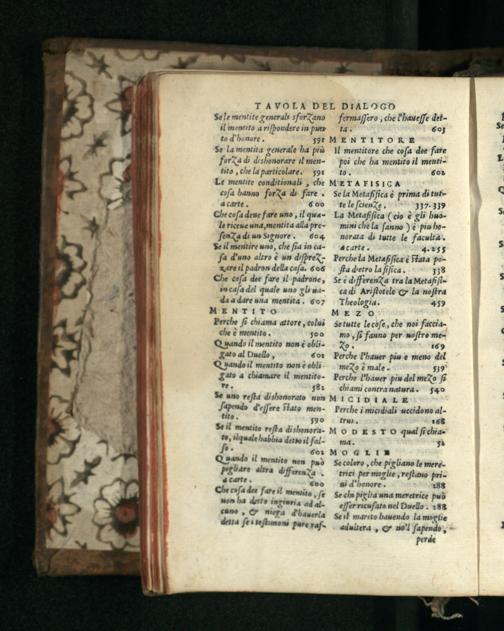 TAVOLA DEL DIALOGO
Se le mentite generali sforZano
il mentito a rispondere in pun
to d'honore. 591
Se la mentita generale ha più
forZa di dishonorare il men-
tito, che la particolare. 591
Le mentite conditionali, che
cosa hanno forZa di fare.
a carte. 600
Che cosa deue fare uno, il qua-
le riceue una, mentita alla pre-
senZa di un Signore. 604
Se il mentire uno, che sia in ca-
sa d'uno altro è un dispreZ-
zare il padron della casa. 606
Che cosa dee fare il padrone,
in casa del quale uno gli ua-
da a dare una mentita. 607
MENTITO
Perche si chiama attore, colui
che è mentito. 500
Quando il mentito non è obli-
gato al Duello, 601
Quando il mentito non è obli-
gato a chiamare il mentito-
re. 581
Se uno resta dishonorato non
sapendo d'essere stato men-
tito. 590
Se il mentito resta dishonora-
to, il quale habbia detto il fal-
so. 602
Quando il mentito non può
pigliare altra differenZa.
a carte. 600
Che cosa dee fare il mentito, se
non ha detto ingiuria ad al-
cuno, & niega d'hauerla
detta se i testimoni pure raf-
fermassero, che l'hauesse det-
ta. 603
MENTITORE
Il mentitore che cosa dee fare
poi che ha mentito il menti-
to. 602
METAFISICA
Se la Metafisica è prima di tut-
te le scienZe. 337.339
La Metafisica (cio è gli huo-
mini che la sanno) è piu ho-
norata di tutte le facultà.
a carte. 4.255
Perche la Metafisica è stata po-
sta dietro la fisica. 338
Se è differenZa tra la Metafisi-
ca di Aristotele & la nostra
Theologia. 459
MEZO
Se tutte le cose, che noi faccia-
mo, si fanno per nostro me-
Zo. 169
Perche l'hauer piu e meno del
meZo è male. 539
Perche l'hauer piu del meZo si
chiami contra natura. 540
MICIDIALE
Perche i micidiali uccidono al-
trui. 168
MODESTO qual si chia-
ma. 52
MOGLIE
Se coloro, che pigliano le mere-
trici per moglie, restano pri-
ui d'honore. 288
Se chi piglia una meretrice può
esser ricusato nel Duello. 288
Se il marito hauendo la moglie
adultera, & no'l sapendo,
perde